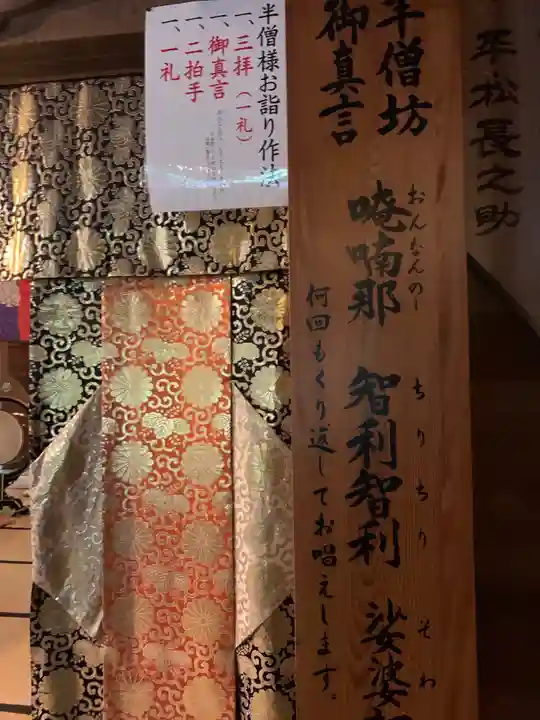 平松長之助
半僧坊
御真言
おんなんのー
唵喃那
ちりちり
智利智利
そわ
娑婆
何回もくり返してお唱えします。
半僧様お詣り作法
一、三拝（一礼）
一、御真言
一、二拍手
一、一礼